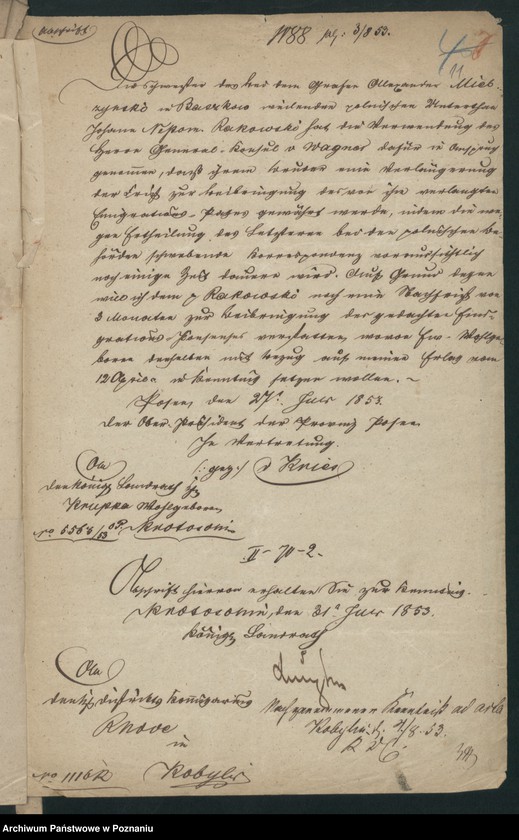 Abschrift
1188 pß: 3/8 53.
11
Die Schwester des bei dem Grafen Alexander Miel-
zynski in Baszkow weilenden polnischen Unterthan
Johann Nepom. Rakowski hat die Verwendung des
Herrn General-Konsul v Wagner dafür in Anspruch
genommen, daß ihrem Bruder eine Verlängerung
der Frist zur Beibringung des von ihm verlangten
Emigrations-Paßes gewährt werde, indem die we-
gen Ertheilung des Letzteren bei den polnischen Be-
hörden schwebende Korrespondenz voraussichtlich
noch einige Zeit dauern wird. Auf Grund dessen
will ich dem p Rakowski noch eine Nachfrist von
3 Monaten zur Beibringung des gedachten Emi-
grations-Konsenses verstatten, wovon Ew. Wohlge-
boren denselben mit Bezug auf meinen Erlaß vom
12 April in Kenntniß setzen wollen. ~
Posen, den 27t Juli 1853.
Der Ober Präsident der Provinz Posen
In Vertretung.
(: gez :) v Kries
An
den Königl Landrath
Krupka Wohlgeboren
No 5563/53 OP. Krotoschin
II-70-2.
Abschrift hiervon erhalten Sie zur Kenntniß.
Krotoschin, den 31t Juli 1853.
Königl Landrath
An
den Kgl. Distrikts Kommissarius
Knove
in
No 11162 Kobylin
Nach genommener Kenntniß ad acta
Kobylin d. 4/8. 53.
K. D. C.